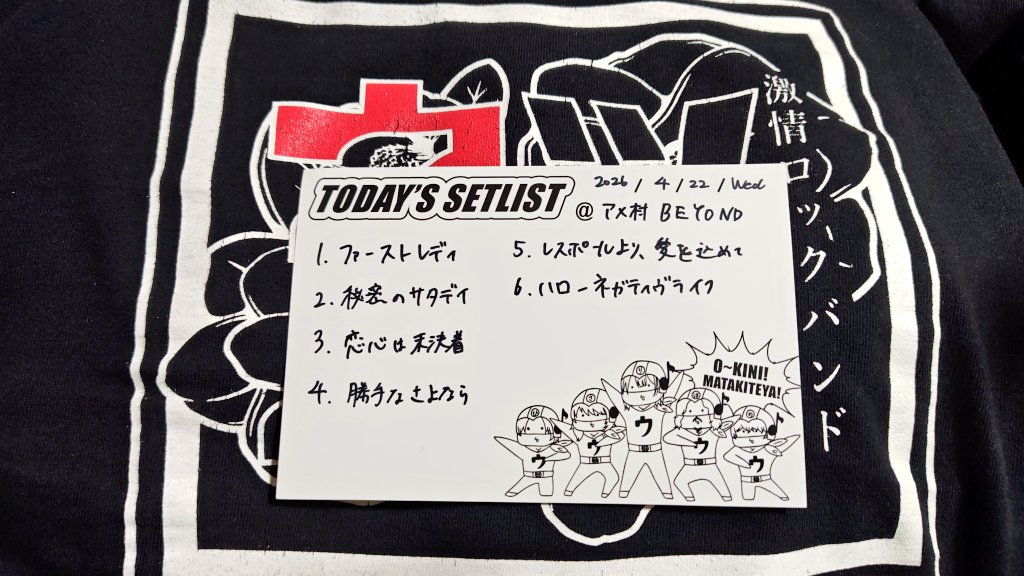 激情ロックバンド
TODAY'S SETLIST
2026 / 4 / 22 / Wed
@ アメ村 BEYOND
1. ファーストレディ
2. 秘密のサタデイ
3. 恋心は未決着
4. 勝手なさよなら
5. レスポールより、愛を込めて
6. ハローネガティヴライフ
O~KINI!
MATAKITEYA!
ウ
ウ
ウ
ウ
ウ